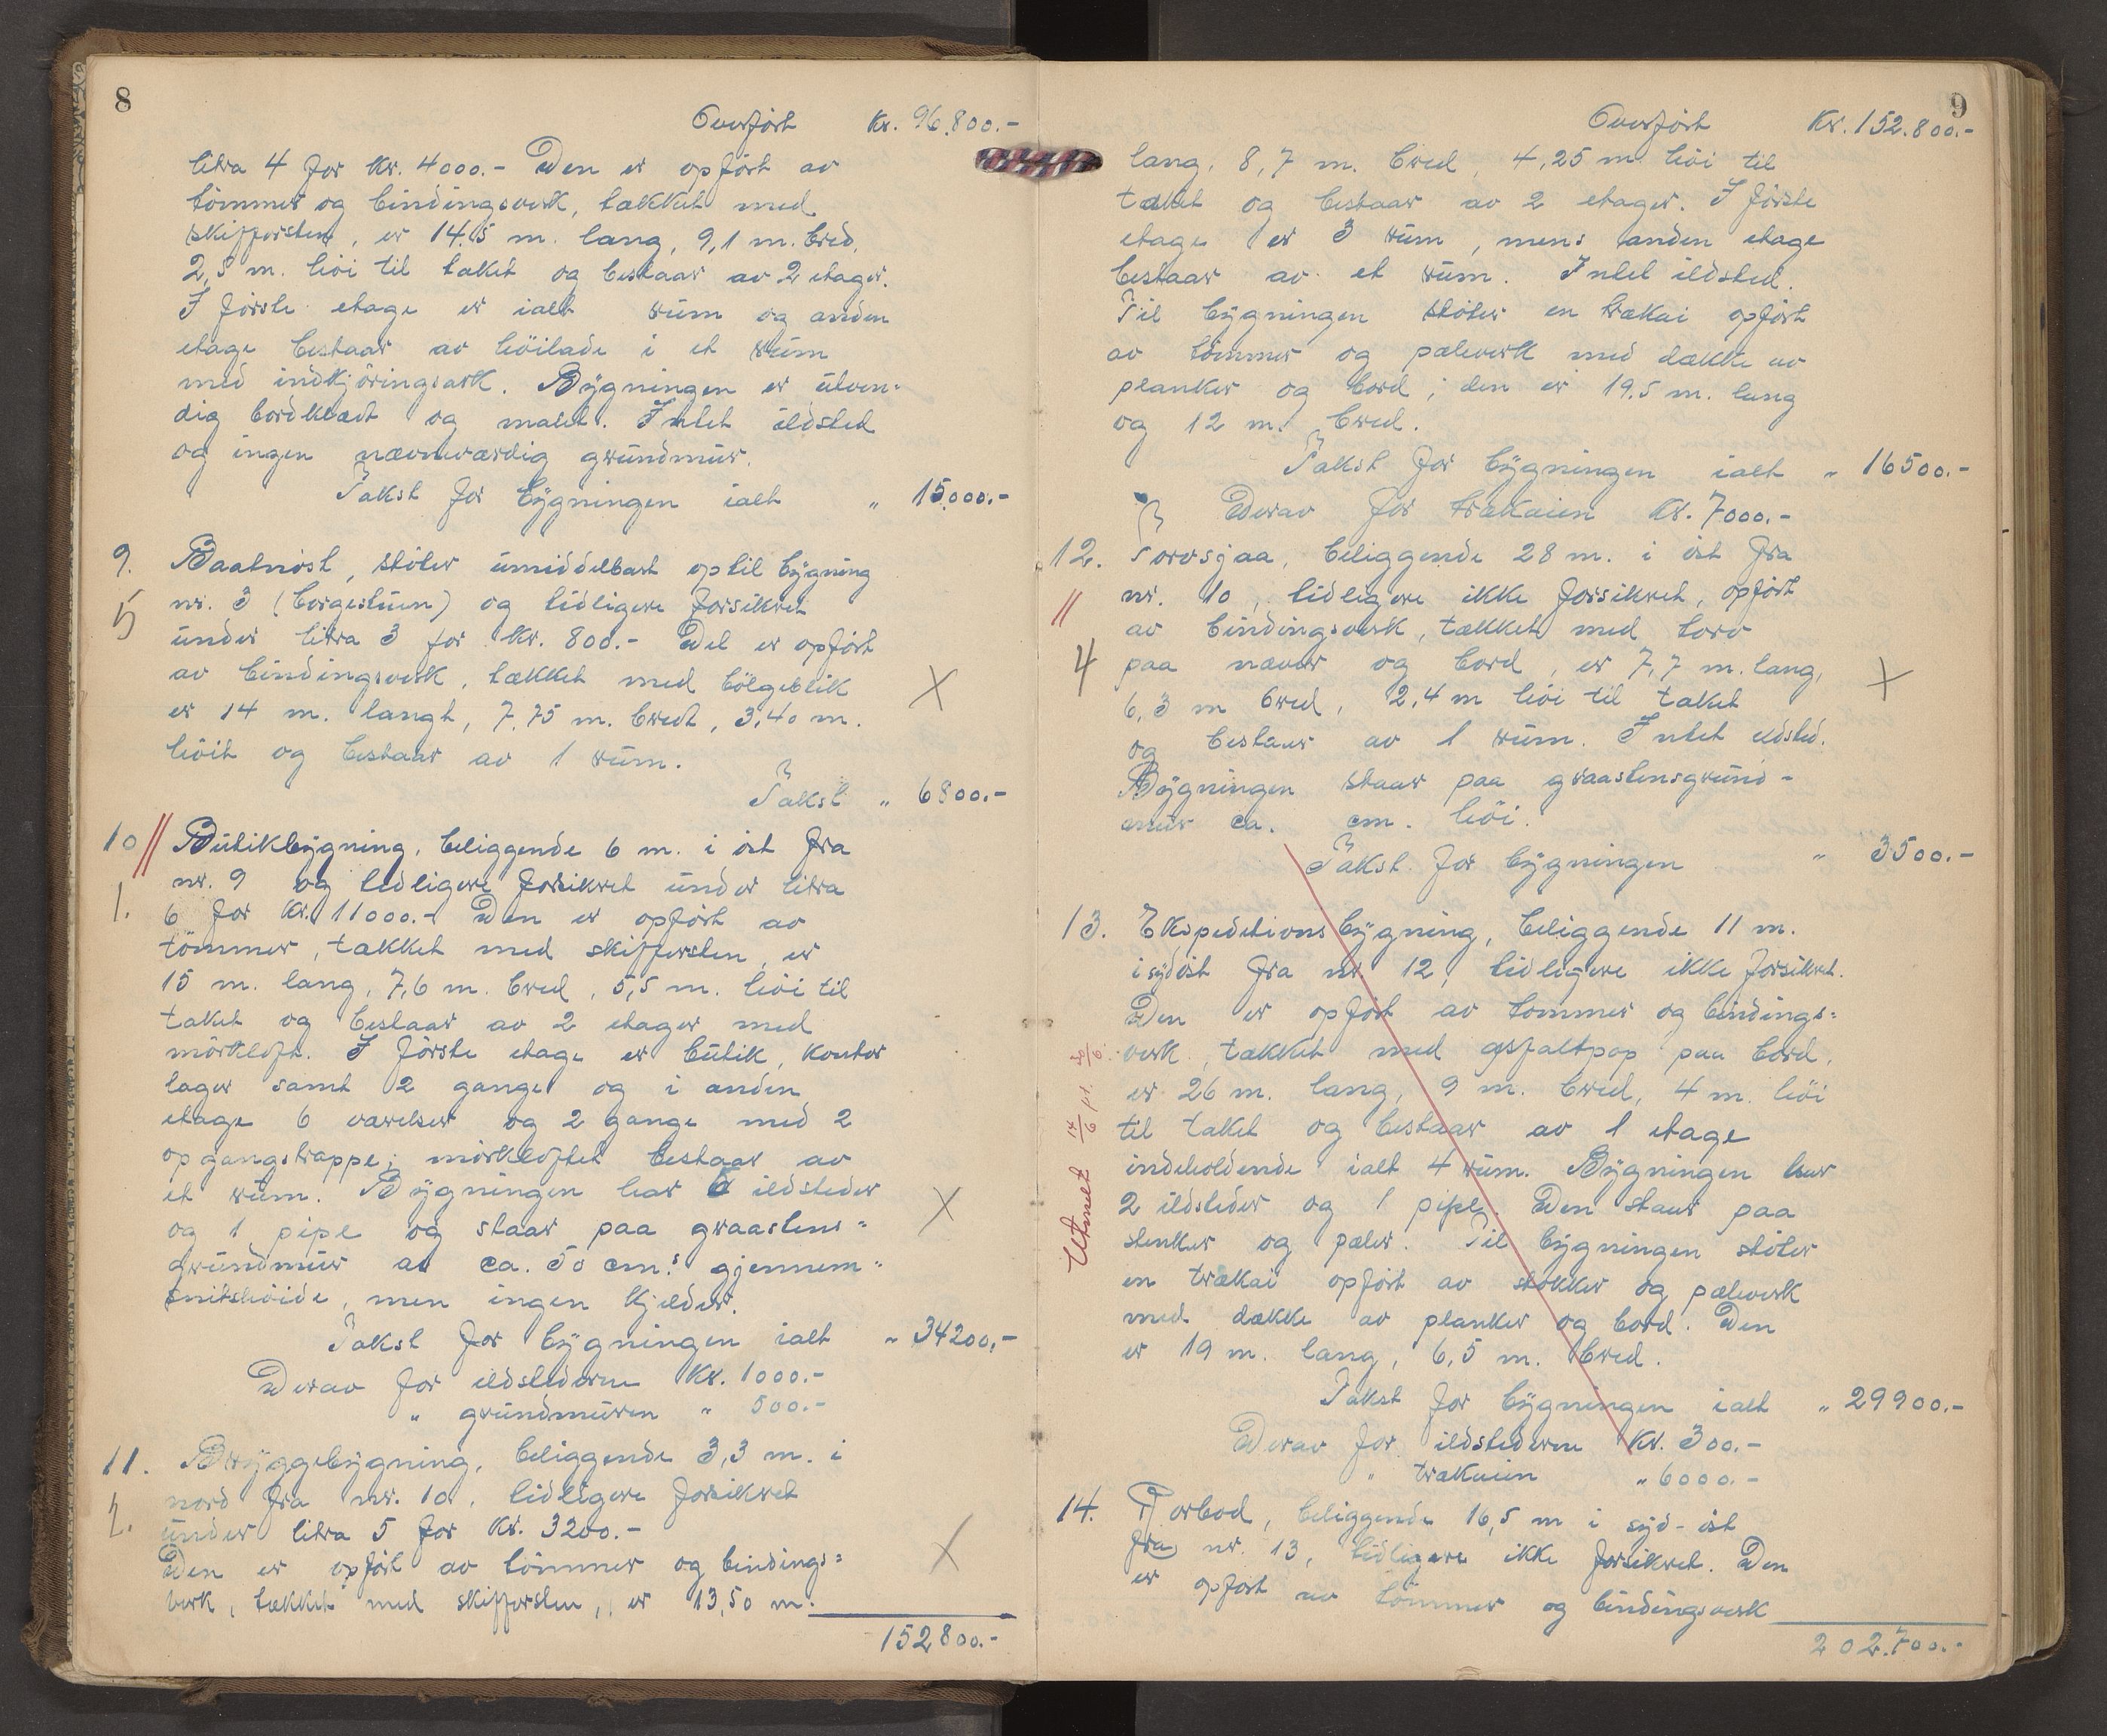 8
Overført Kr. 96.800.-
litra 4 for Kr. 4000.- Den er opført av
tømmer og bindingsverk, tækket med
skifersten, er 14.5 m. lang, 9,1 m. bred,
2,5 m. høi til taket og bestaar av 2 etager.
I første etage er ialt rum og anden
etage bestaar av høilade i et rum
med indkjøringsark. Bygningen er utven=
dig bordklædt og malet. Intet ildsted
og ingen nævneværdig grundmur.
Takst for bygningen ialt " 15.000.-
9. Baatnøst, støter umiddelbart optil bygning
5 nr. 3 (borgestuen) og tidligere forsikret
under litra 3 for Kr. 800.- Det er opført
av bindingsverk, tækket med bølgeblik
er 14 m. langt, 7,75 m. bredt, 3,40 m. X
høit og bestaar av 1 rum.
Takst " 6800.-
10 // Butikbygning, beliggende 6 m. i øst fra
nr. 9 og tidligere forsikret under litra
1. 6 for Kr. 11000.- Den er opført av
tømmer, tækket med skifersten, er
15 m. lang, 7,6 m. bred, 5,5 m. høi til
taket og bestaar av 2 etager med
mørkloft. I første etage er butik, kontor
lager samt 2 gange og i anden
etage 6 værelser og 2 gange med 2
opgangstrappe; mørkloftet bestaar av
et rum. Bygningen har ildsteder X
og 1 pipe og staar paa graastens=
grundmur av ca. 50 cm.s gjennem=
snitshøide, men ingen kjelder.
Takst for bygningen ialt " 34200.-
Derav for ildstederne Kr. 1000.-
" grundmuren " 500.-
11. Bryggebygning, beliggende 3,3 m. i
nord fra nr. 10, tidligere forsikret
2. under litra 5 for Kr. 3200.-
Den er opført av tømmer og bindings= X
verk, tækket med skifersten, er 13,50 m.
152800.-
9
Overført Kr. 152.800.-
lang, 8,7 m. bred, 4,25 m høi til
taket og bestaar av 2 etager. I første
etage er 3 rum, mens anden etage
bestaar av et rum. Intet ildsted.
Til bygningen støter en trækai opført
av tømmer og pæleverk med dække av
planker og bord; den er 19.5 m. lang
og 12 m. bred.
Takst for bygningen ialt " 16500.-
Derav for trækaien Kr. 7000.-
12. Torvsjaa, beliggende 28 m. i øst fra
// nr. 10, tidligere ikke forsikret, opført
av bindingsverk, tækket med torv
4 paa næver og bord, er 7,7 m. lang, X
6,3 m bred, 2,4 m høi til taket
og bestaar av 1 rum. Intet ildsted.
Bygningen staar paa graastensgrund-
mur ca. cm. høi.
Takst for bygningen " 3500.-
13. Ekspeditionsbygning, beliggende 11 m.
i sydøst fra nr. 12, tidligere ikke forsikret.
Den er opført av tømmer og bindings=
verk, tækket med asfaltpap paa bord,
er 26 m. lang, 9 m. bred, 4 m. høi
til taket og bestaar av 1 etage
indeholdende ialt 4 rum. Bygningen har
2 ildsteder og 1 pipe. Den staar paa
stenker og pæler. Til bygningen støter
en trækai opført av stokker og pæleverk
med dække av planker og bord. Den
er 19 m. lang, 6,5 m. bred.
Takst for bygningen ialt " 29900.-
Derav for ildstederne Kr. 300.-
" trækaien " 6000.-
Utmeldt
14. Torbod, beliggende 16,5 m i syd-øst
fra nr. 13, tidligere ikke forsikret. Den
er opført av tømmer og bindingsverk
202.700.-